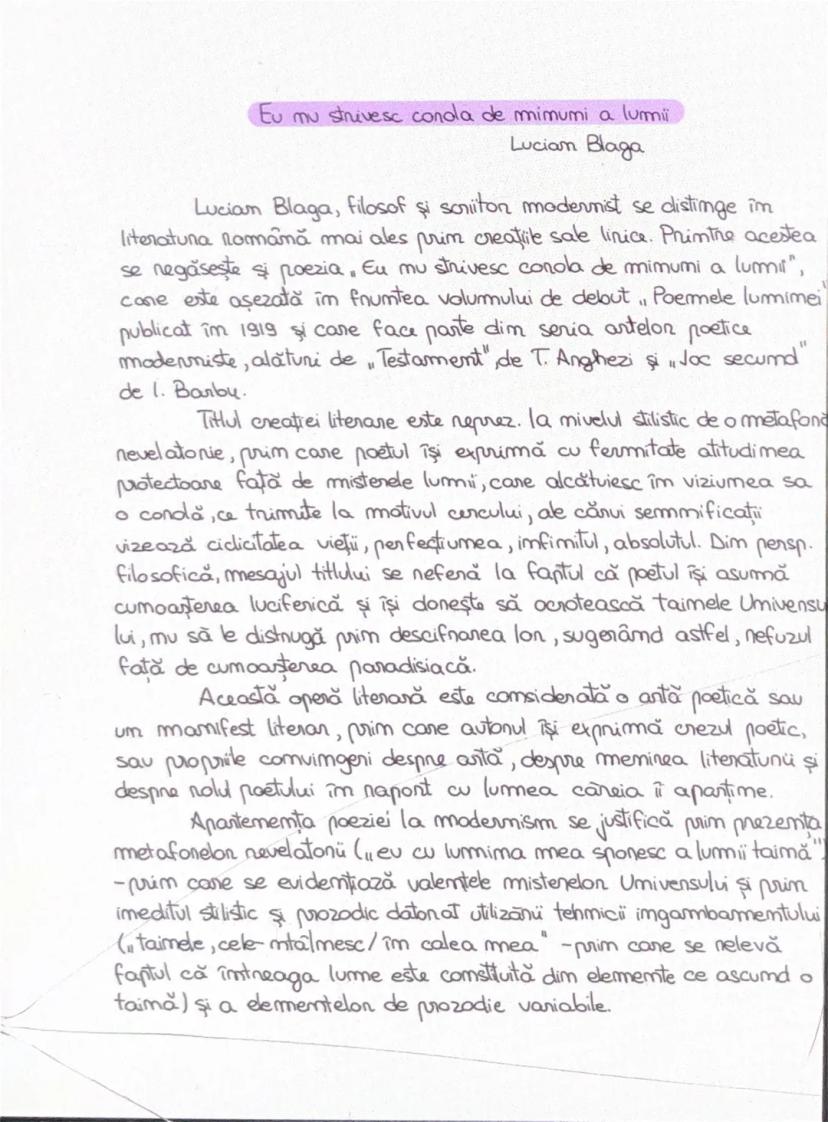 Eu nu strivesc corola de minuni a lumii
Lucian Blaga
Lucian Blaga, filosof și scriitor modernist se distinge în
literatura română mai ales prin creațiile sale lirice. Printre acestea
se regăsește și poezia „Eu nu strivesc corola de minuni a lumii",
care este așezată în fruntea volumului de debut „Poemele luminei"
publicat în 1919 și care face parte din seria artelor poetice
moderniste, alături de „Testament", de T. Arghezi și „Joc secund"
de I. Barbu.
Titlul creației literare este reprez. la nivelul stilistic de o metaforă
revelatorie, prin care poetul își exprimă cu fermitate atitudinea
protectoare față de misterele lumii, care alcătuiesc în viziunea sa
o corolă, ce trimite la motivul cercului, ale cărui semnificații
vizează ciclicitatea vieții, perfecțiunea, infinitul, absolutul. Din persp.
filosofică, mesajul titlului se referă la faptul că poetul își asumă
cunoașterea luciferică și își dorește să ocrotească tainele Universu
lui, nu să le distrugă prin descifrarea lor, sugerând astfel, refuzul
față de cunoașterea paradisiacă.
Această operă literară este considerată o artă poetică sau
un manifest literar, prin care autorul își exprimă crezul poetic,
sau propriile convingeri despre artă, despre menirea literaturii și
despre rolul poetului în raport cu lumea căreia îi aparține.
Apartenența poeziei la modernism se justifică prin prezența
metaforelor revelatorii („eu cu lumina mea sporesc a lumii taină")
-prin care se evidențiază valențele misterelor Universului și prin
ineditul stilistic și prozodic datorat utilizării tehnicii ingambamentului
(„tainele, cele-ntâlnesc/ în calea mea" -prin care se relevă
faptul că întreaga lume este constituită din elemente ce ascund o
taină) și a elementelor de prozodie variabile.